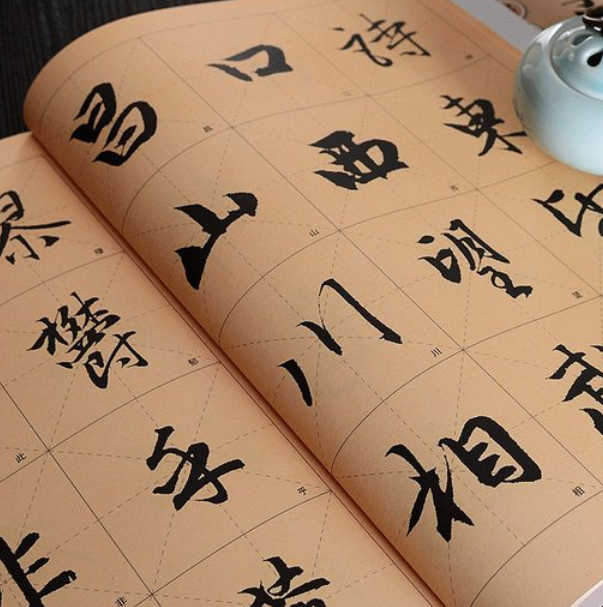 詩東
口西望武
昌山川相
繆鬱乎
非